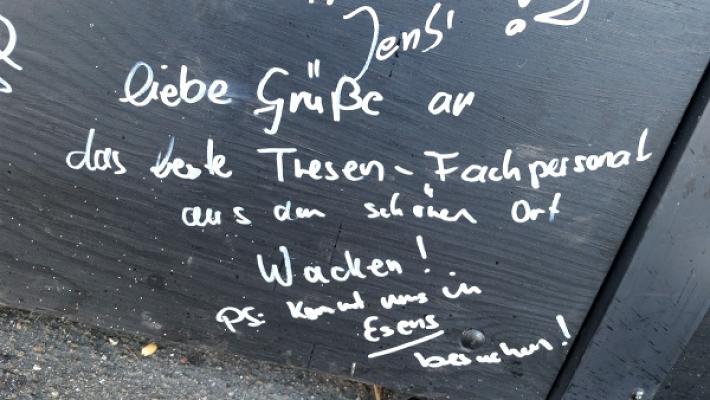 Jens'
liebe Grüße an
das beste Tresen-Fachpersonal
aus dem schönen Ort
Wacken!
PS: Kommt uns in
Esens
besuchen!